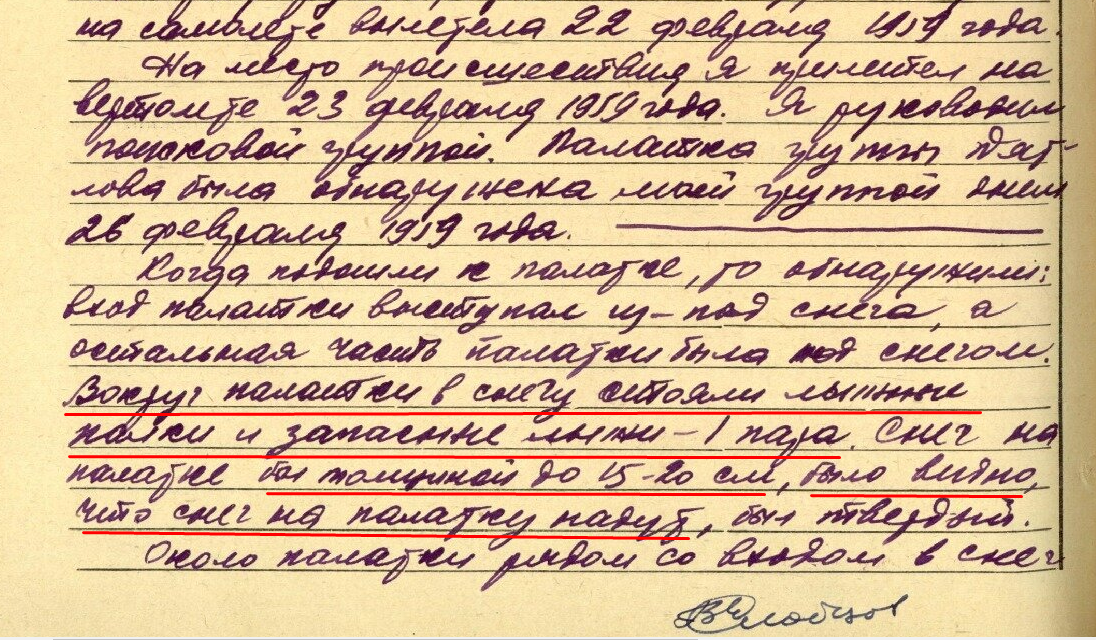 на самолете вылетела 22 февраля 1959 года.
На место происшествия я прилетел на
вертолете 23 февраля 1959 года. Я руководил
поисковой группой. Палатка группы Дят-
лова была обнаружена моей группой днем
26 февраля 1959 года.
Когда подошли к палатке, то обнаружили:
вход палатки выступал из-под снега, а
остальная часть палатки была под снегом.
Вокруг палатки в снегу стояли лыжные
палки и запасные лыжи - 1 пара. Снег на
палатке был толщиной до 15-20 см, было видно,
что снег на палатку надут, был твердый.
Около палатки рядом со входом в снег
Слобцов